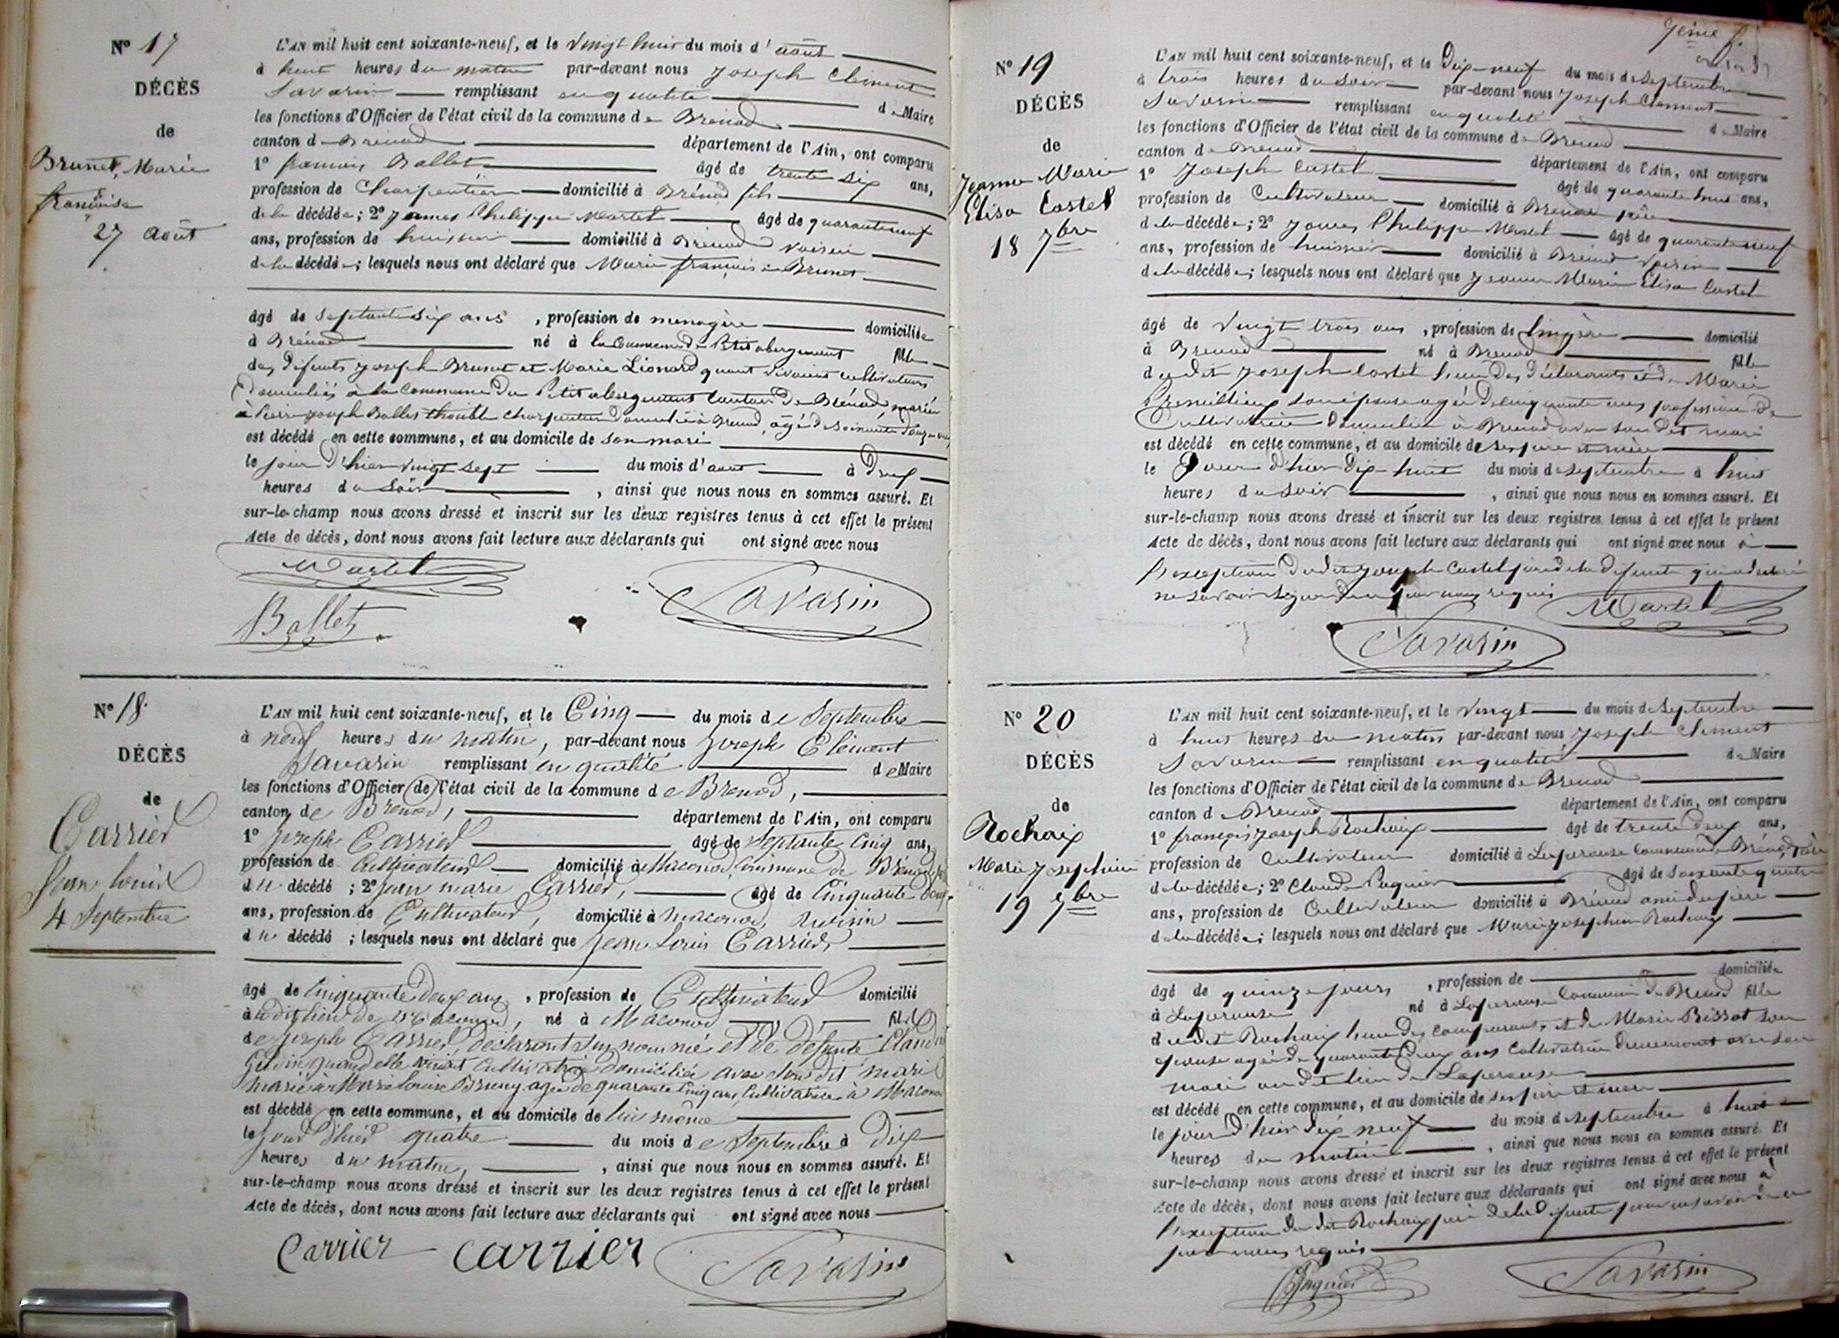 N° 17
DÉCÈS
de
Brunet, Marie
françoise
27 août
L'AN mil huit cent soixante-neuf, et le vingt huit du mois d'août
à huit heures du matin par-devant nous Joseph Clément
Savarin remplissant en qualité de Maire
les fonctions d'Officier de l'état civil de la commune de Brénod
canton de Brénod département de l'Ain, ont comparu
1° françois Ballet âgé de trente six ans,
profession de charpentier domicilié à Brénod fils
de la décédée; 2° James Philippe Martel âgé de quarante neuf
ans, profession de huissier domicilié à Brénod voisin
de la décédée; lesquels nous ont déclaré que Marie françoise Brunet
âgé de septante six ans, profession de menagère domiciliée
à Brénod né à la Commune du Petit abergement fille
des défunts Joseph Brunet et Marie Lionard quand vivaient cultivateurs
domiciliés à la Commune du Petit abergement Canton de Brénod mariée
à Pierre Joseph Ballet charpentier domicilié à Brénod, âgé de soixante
est décédé en cette commune, et au domicile de son mari
le jour d'hier vingt sept du mois d'août à deux
heures du soir, ainsi que nous nous en sommes assuré. Et
sur-le-champ nous avons dressé et inscrit sur les deux registres tenus à cet effet le présent
Acte de décès, dont nous avons fait lecture aux déclarants qui ont signé avec nous
Martel
Ballet
Savarin
N° 18
DÉCÈS
de
Carrier
Jean Louis
4 Septembre
L'AN mil huit cent soixante-neuf, et le Cinq du mois de Septembre
à neuf heures du matin, par-devant nous Joseph Clément
Savarin remplissant en qualité de Maire
les fonctions d'Officier de l'état civil de la commune de Brenod,
canton de Brenod, département de l'Ain, ont comparu
1° Joseph Carrier âgé de septante cinq ans,
profession de Cultivateur domicilié à Maconod, Commune de Brénod
du décédé; 2° Jean marie Carrier, âgé de Cinquante
ans, profession de Cultivateur, domicilié à Maconod,
du décédé; lesquels nous ont déclaré que Jean Louis Carrier,
âgé de Cinquante deux ans, profession de Cultivateur domicilié
à dit lieu de Maconod, né à Maconod fils
de Joseph Carrier déclarant susnommé et de défunte
quand elle vivait Cultivatrice domiciliée avec son dit mari
marié à Louise agée de quarante cinq ans, Cultivatrice à Maconod
est décédé en cette commune, et au domicile de lui même
le jour d'hier quatre du mois de Septembre à dix
heures du matin, ainsi que nous nous en sommes assuré. Et
sur-le-champ nous avons dressé et inscrit sur les deux registres tenus à cet effet le présent
Acte de décès, dont nous avons fait lecture aux déclarants qui ont signé avec nous
Carrier carrier Savarin
7ème f.
N° 19
DÉCÈS
de
Jeanne Marie
Elisa Castel
18 7bre
L'AN mil huit cent soixante-neuf, et le Dix-neuf du mois de Septembre
à trois heures du soir par-devant nous Joseph Clément
Savarin remplissant en qualité de Maire
les fonctions d'Officier de l'état civil de la commune de Brenod
canton de Brenod département de l'Ain, ont comparu
1° Joseph Castel âgé de quarante huit ans,
profession de Cultivateur domicilié à Brénod père
de la décédée; 2° James Philippe Martel âgé de quarante neuf
ans, profession de huissier domicilié à Brénod voisin
de la décédée; lesquels nous ont déclaré que Jeanne Marie Elisa Castel
âgé de vingt trois ans, profession de lingère domicilié
à Brenod né à Brenod fille
du dit Joseph Castel l'un des déclarants et de Marie
son épouse agée de cinquante ans profession de
Cultivatrice domiciliée à Brenod avec son dit mari
est décédé en cette commune, et au domicile de ses père et mère
le Jour d'hier dix huit du mois de septembre à huit
heures du soir, ainsi que nous nous en sommes assuré. Et
sur-le-champ nous avons dressé et inscrit sur les deux registres tenus à cet effet le présent
Acte de décès, dont nous avons fait lecture aux déclarants qui ont signé avec nous à
l'exception du dit Joseph Castel père de la défunte qui a déclaré
ne savoir signer de ce par nous requis
Martel
Savarin
N° 20
DÉCÈS
de
Rochaix
Marie Josephine
19 7bre
L'AN mil huit cent soixante-neuf, et le vingt du mois de Septembre
à huit heures du matin par-devant nous Joseph Clément
Savarin remplissant en qualité de Maire
les fonctions d'Officier de l'état civil de la commune de Brenod
canton de Brenod département de l'Ain, ont comparu
1° françois Joseph Rochaix âgé de trente deux ans,
profession de Cultivateur domicilié à Laperouse Commune de Brénod, père
de la décédée; 2° Claude Paquier âgé de soixante quatre
ans, profession de Cultivateur domicilié à Brénod ami du père
de la décédée; lesquels nous ont déclaré que Marie Josephine Rochaix
âgé de quinze jours, profession de domiciliée
à Laperouse né à Laperouse Commune de Brenod fille
du dit Rochaix l'un des comparants, et de Marie Bissot son
épouse agée de quarante deux ans Cultivatrice demeurant avec son
mari au dit lieu de Laperouse
est décédé en cette commune, et au domicile de ses père et mère
le jour d'hier dix-neuf du mois de septembre à huit
heures du matin, ainsi que nous nous en sommes assuré. Et
sur-le-champ nous avons dressé et inscrit sur les deux registres tenus à cet effet le présent
Acte de décès, dont nous avons fait lecture aux déclarants qui ont signé avec nous à
l'exception du dit Rochaix père de la défunte pour ne savoir de ce
par nous requis
Paquier
Savarin